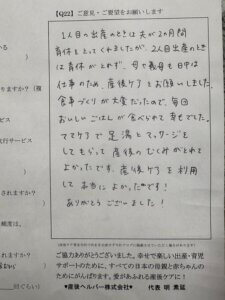 【Q22】ご意見・ご要望をお願いします
1人目の出産のときは夫が2カ月間
育休をとってくれましたが、2人目出産のとき
は育休がとれず、母も義母も日中は
仕事のため、産後ケアをお願いしました。
食事づくりが大変だったので、毎回
おいしいごはんが食べられて幸せでした。
ママケアで足湯とマッサージを
してもらって産後のむくみがとれて
よかったです。産後ケアを利用
して本当によかったです!
ありがとうございました!
ご協力ありがとうございました。幸せで楽しい出産・育児
サポートのために、すべての日本の母親と赤ちゃんの
ためにがんばります。愛があふれる産後ケアを!
産後ヘルパー株式会社 代表 明 素延
りますか?(複
サービス
代行サービス
されますか?
頻度は、
されますか?
回ぐらい)